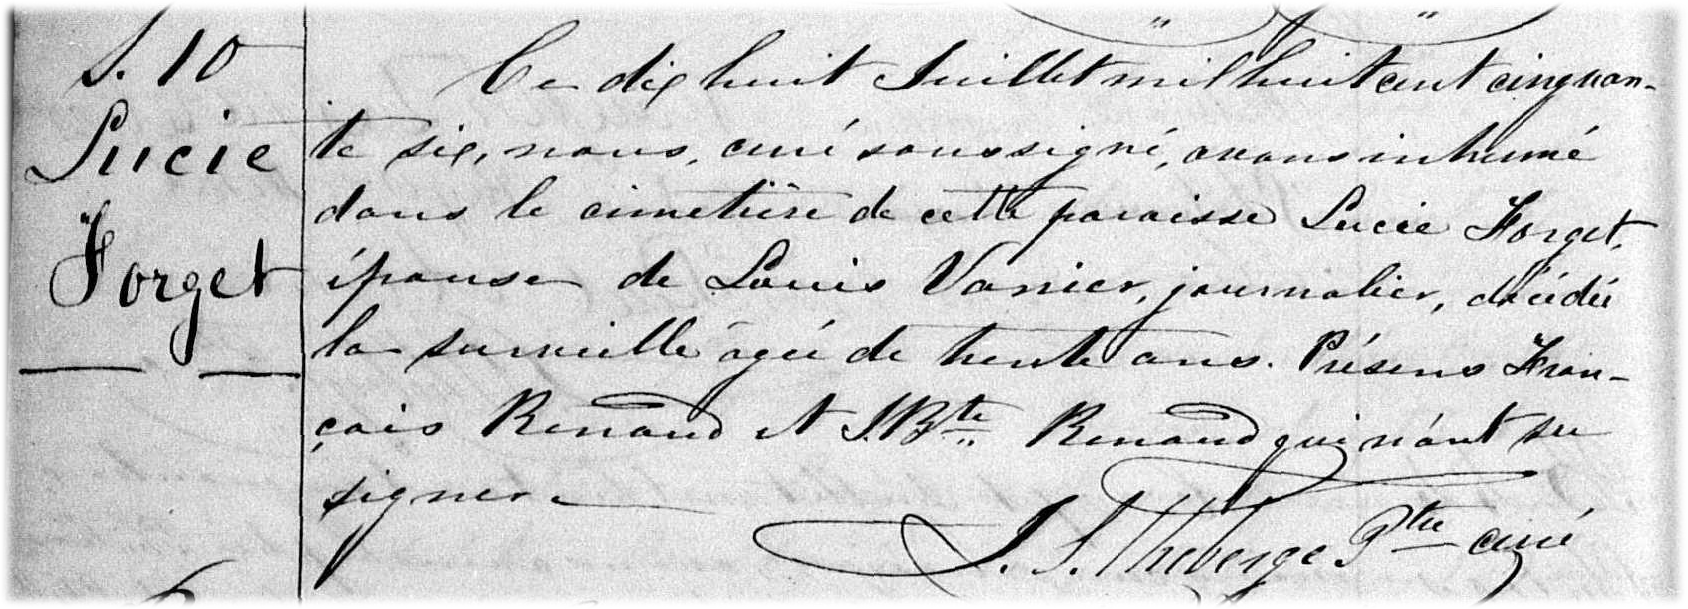 S. 10
Lucie
Forget
Ce dix huit Juillet mil huit cent cinquan-
te six, nous, curé soussigné, avons inhumé
dans le cimetière de cette paroisse Lucie Forget,
épouse de Louis Vanier, journalier, décédée
la surveille âgée de trente ans. Présens Fran-
çais Renaud et J.Bte Renaud qui n'ont su
signer.
J. S. Theberge Ptre curé